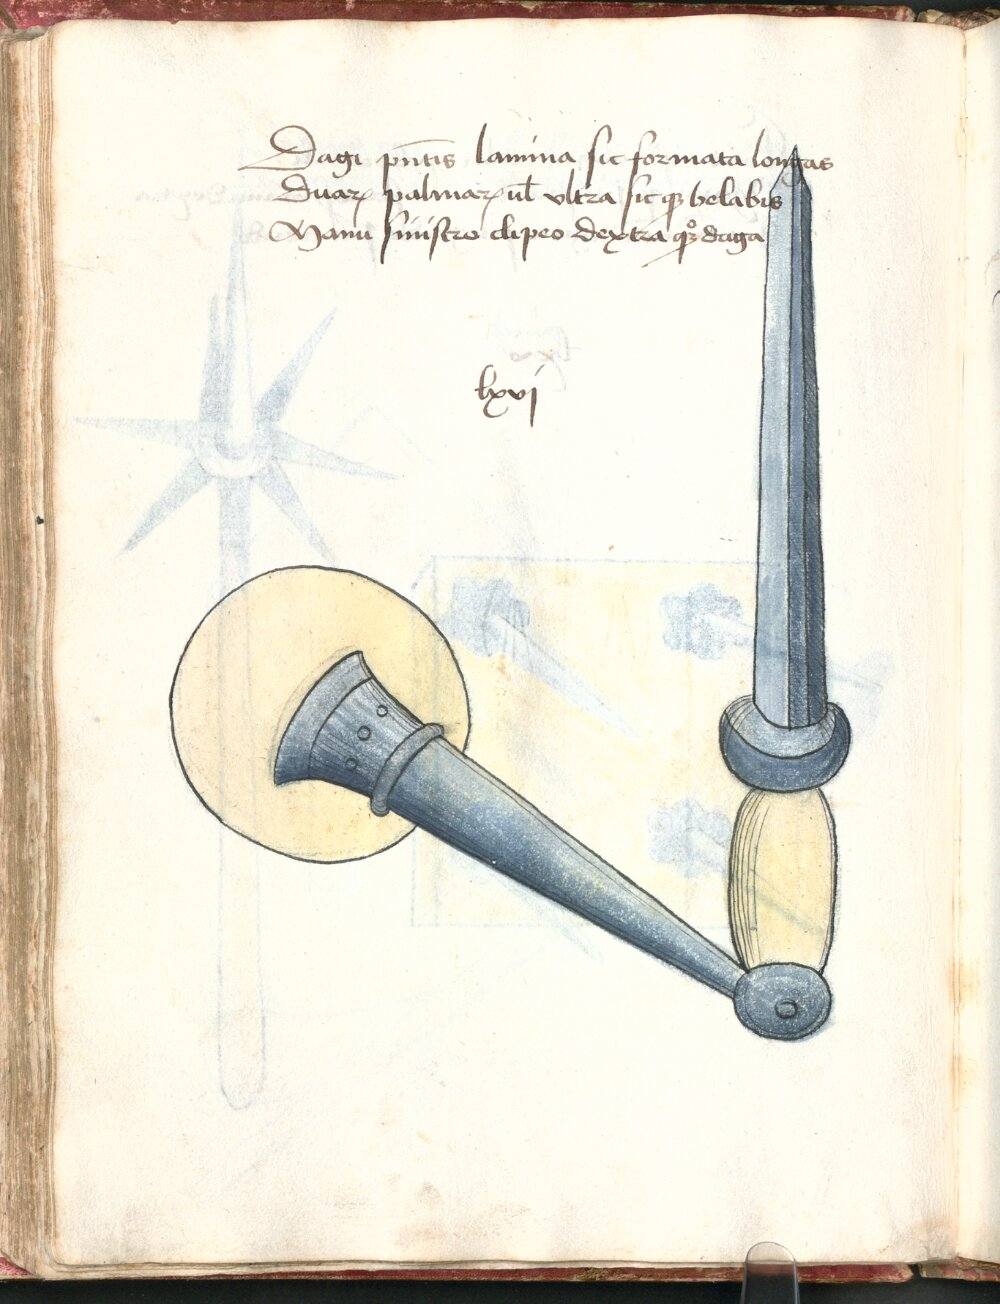 Dagi pn̄tis lamina sic formata longas
Duaꝝ palmaꝝ ul̄ ultra sicqꝫ belabis
Manu sinistro clipeo dextra qꝫ daga
lxvj